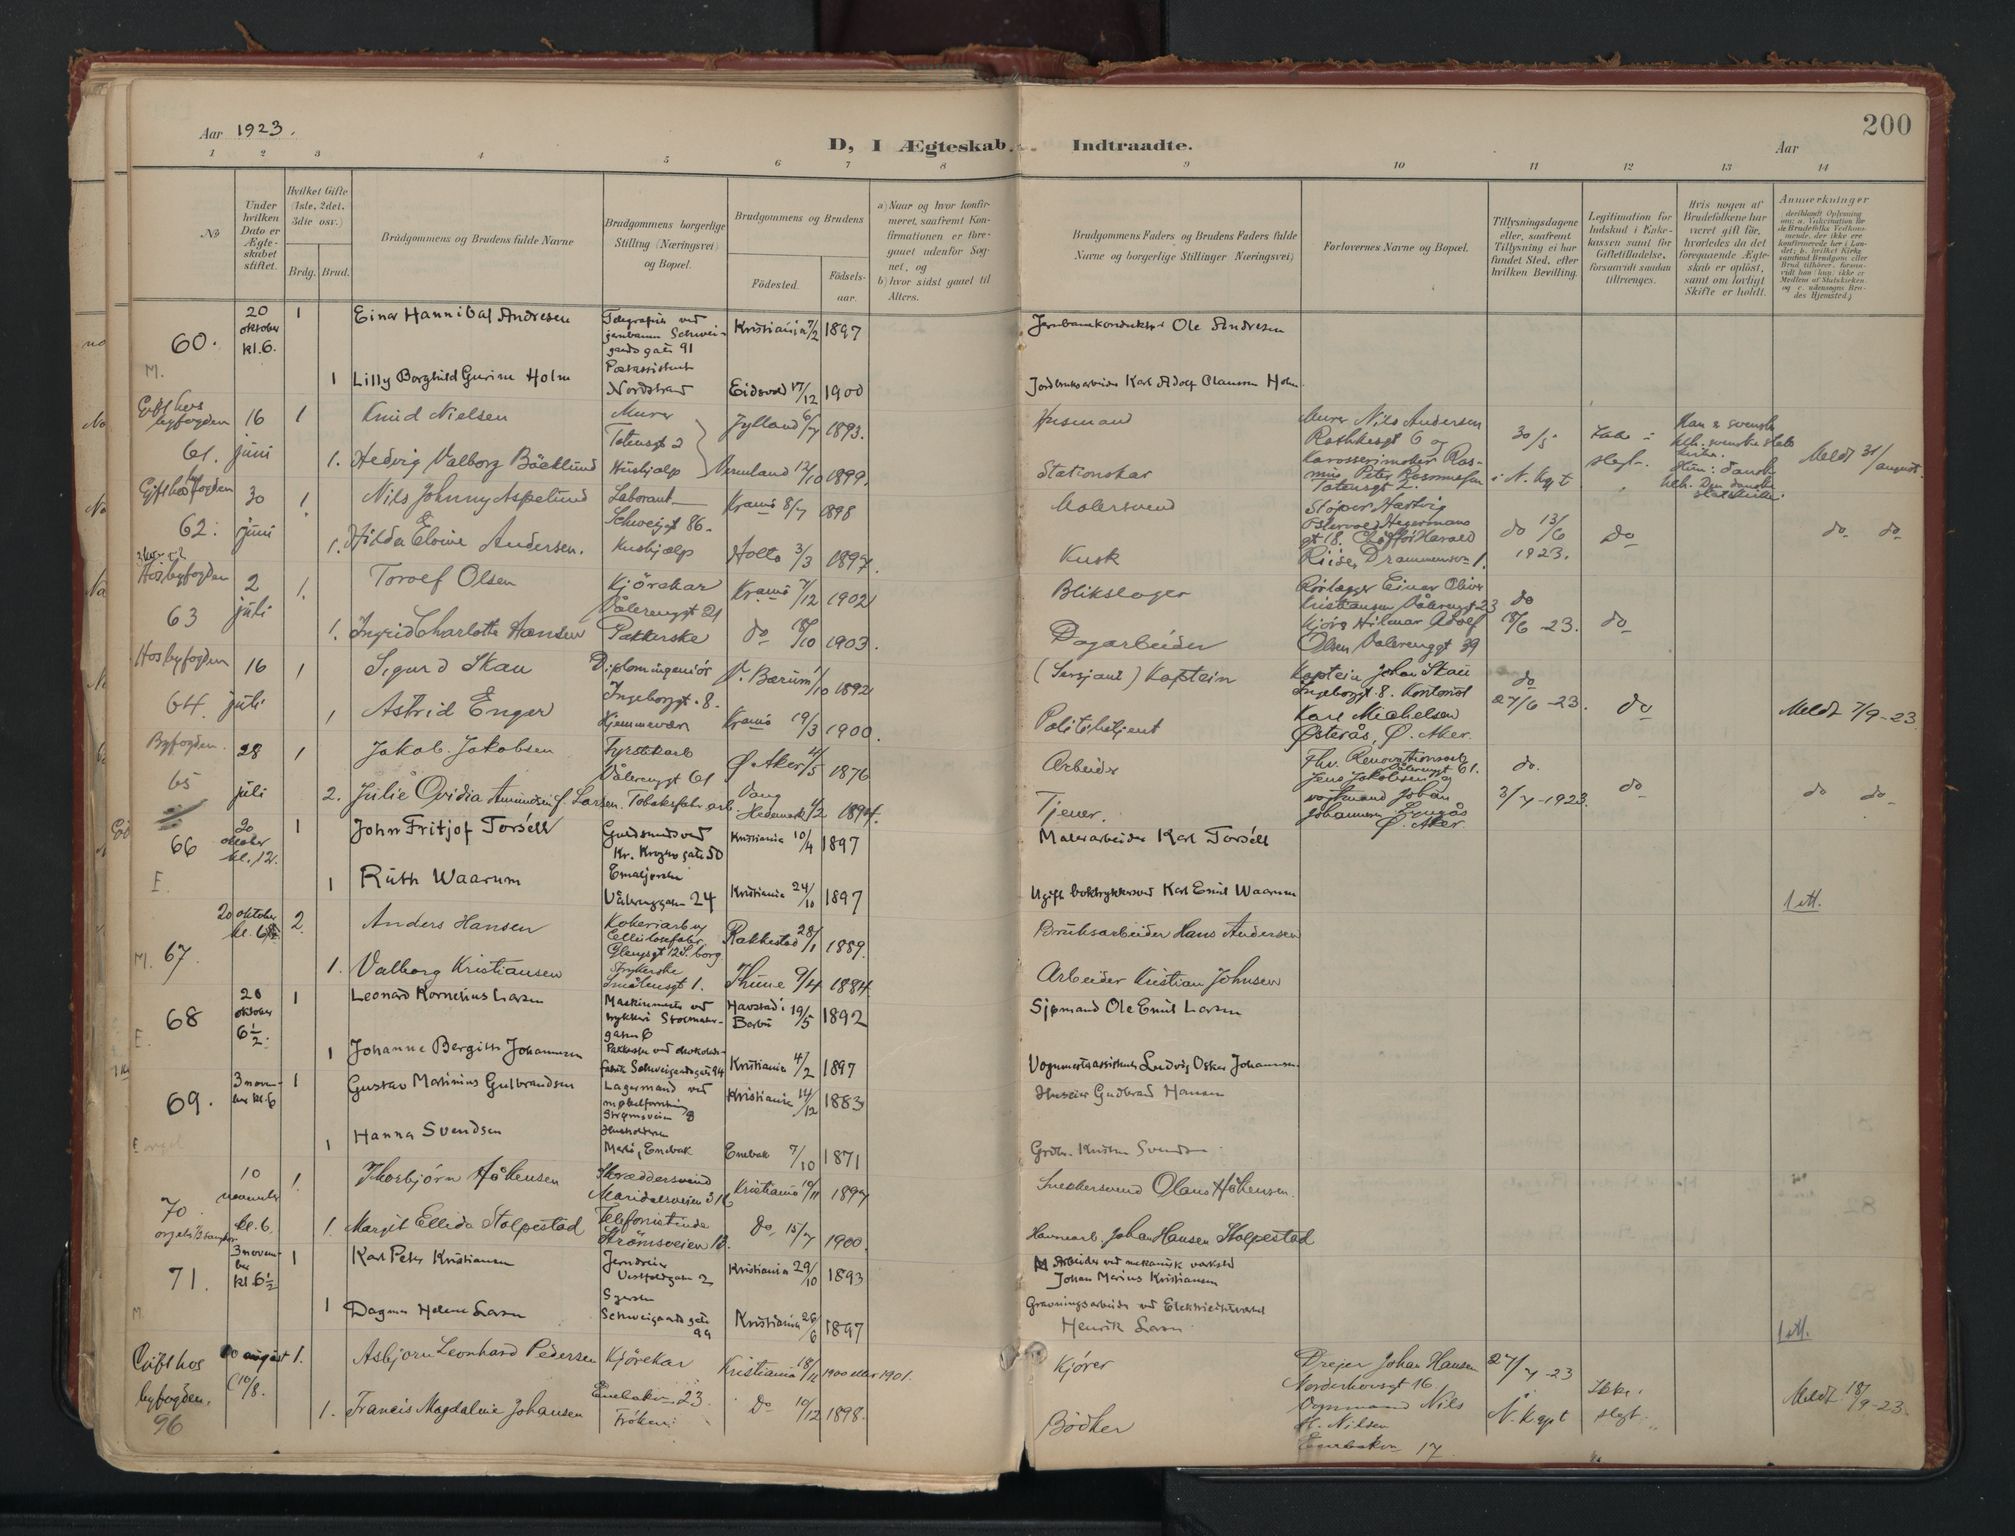 Aar 1923.
D, I Ægteskab Indtraadte.
Aar
200
1 2 3 4 5 6 7 8 9 10 11 12 13 14
No
Under hvilken Dato er Ægteskabet stiftet.
Hvilket Gifte (1ste, 2det, 3die osv.)
Brdg. Brud.
Brudgommens og Brudens fulde Navne
Brudgommens borgerlige Stilling (Næringsvei) og Bopæl.
Brudgommens og Brudens
Födested. Födsels-aar.
a) Naar og hvor konfirmeret, saafremt Konfirmationen er foregaaet udenfor Sognet, og
b) hvor sidst gaaet til Alters.
Brudgommens Faders og Brudens Faders fulde Navne og borgerlige Stillinger Næringsvei)
Forlovernes Navne og Bopæl.
Tillysningsdagene eller, saafremt Tillysning ei har fundet Sted, efter hvilken Bevilling.
Legitimation for Indskud i Enkekassen samt for Giftetilladelse, forsaavidt saadan tiltrænges.
Hvis nogen af Brudefolkene har været gift før, hvorledes da det foregaaende Ægteskab er oplöst, samt om lovligt Skifte er holdt.
Anmærkninger
60. 20 oktober kl. 6. 1 Einar Hannibal Andresen Telegrafist ved jernbanen Schweigaards gate 91 Kristiania 7/2 1897 Jernbanekonduktør Ole Andresen
M. 1 Lilly Borghild Gurine Holm Postassistent Nordstrand Eidsvold 17/12 1900 Jordbruksarbeider Karl Adolf Claussen Holm
Gift hos byfogden 16 1 Knud Nielsen Murer Jylland 6/7 1893. Husmand Murer Nils Andersen Rathkesgt 6 og 30/5 Han e svensk
61. juni 1. Hedvig Valborg Bäcklund Totensgt 2 Hushjælp Vermland 12/10 1899. Stationskar Karosserimaker Rasmus Peter Rasmussen Totensgt 2. i N. Kpt slegt. Hun: dansk Meldt 31/ august
Gift hos byfogden 30 1 Nils Johnny Aspelund Laborant Schweigt 86 Krania 8/7 1898 Malersvend Støper Hartvig
62. juni 1. Hilda Eloise Andersen. Hushjælp Holto 3/3 1897. Kusk Harald Riise, Drammensv 1. do 13/6 1923. Do do do
Hos byfogden 2 1. Torolf Olsen Kjörekar Vålerenggt 21 Krania 7/12 1902 Blikslager Rørlegger Einar Oliver Kristiansen Vålerenggt 23 do
63 juli 1. Ingrid Charlotte Hansen Pakkerske do 18/10 1903. Dagarbeider Kjører Hilmar Adolf Olsen Valerenggt 39 18/6 -23. do
Hos byfogden 16 1 Sigurd Skau Diplomingeniör Ingeborggt. 8. V. Bærum 1/10 1892 (Sersjant) Kaptein Kaptein Johan Skau Ingeborggt. 8. Kontorist do
64. juli 1 Astrid Enger Hjemmevær Krania 19/3 1900. Politibetjent Karl Michelsen Østerås, Ø. Aker. 27/6 -23. do Meldt 7/9-23
Byfogden. 28 1 Jakob Jakobsen Fyrstikarb Vålerenggt 61 Ø. Aker 4/5 1876 Arbeider Fhv. Renovationsarb Jens Jakobsen Vålerenggt 61. og do.
65 juli 2. Julie Ovidia Amundsen f. Larsen. Tobaksfabr. arb. Vang Hedemark 4/2 1894. Tjener. vognmand Johan Johannesen Ø. Aker. 3/7-1923. do do do
66 20 oktober kl. 12. 1 John Fritjof Torséll Guldsmed ved Kr. Kroghs gate 50 Kristiania 10/4 1897 Malerarbeider Karl Torséll
E. 1 Ruth Waarum Emaljørske Vålerenggaten 24 Kristiania 24/10 1897 Ugift boktrykkersvend Karl Emil Waarum 1 ett.
20 oktober kl. 6½ 2. Anders Hansen Kokeriarb v Cellulosefabr. Glengsgt 12 S.borg Rakkestad 28/1 1889. Bruksarbeider Hans Andersen
M. 67. 1. Valborg Kristiansen Strykerske Smålensgt 1. Thune 9/4 1884. Arbeider Kristian Johnsen
68 20 oktober 6½. 1 Leonard Kornelius Larsen Maskinmester ved trykkeri Stolmakergaten 6 Havstad i Barbu 19/5 1892 Sjømand Ole Emil Larsen
E. 1 Johanne Bergitte Johannessen Pakkerske ved chokoladefabrik Schweigaardsgate 94 Kristiania 4/2 1897 Vognmesterassistent Ludvig Oskar Johannessen
69. 3 november kl. 6 1 Gustav Marinius Gulbrandsen Lagermand ved møbelforretning Strømsveien 8 Kristiania 14/12 1883 Huseier Gudbrand Hansen
1 Hanna Svendsen Husholderske Enebak Enebak 7/10 1871 Svendsen
70. 10 november 1. Thorbjørn Håkensen Skræddersvend Maridalsveien 31 Kristiania 10/11 1897 Snekkersvend Olaus Håkensen.
kl. 6. 1. Margit Ellida Stolpestad Telefonistinde Strömsveien 18. Do 15/7 1900. Havnearb. Johan Hansen Stolpestad
71. 3 november kl. 6½ 1 Karl Peter Kristiansen Jerndreier Vestfoldgaten 2 Kristiania 29/10 1893 Arbeider ved mekanisk verksted Johan Marius Kristiansen
M. 1 Dagmar Helene Larsen Syerske Schweigaards gate 99 Kristiania 26/6 1897 Gravningsarbeider ved Elektricitetsverket Henrik Larsen 1 ett.
Gift hos byfogden. 96 august (10/8. 1. Asbjørn Leonhard Pedersen Kjörekar Kristiania 18/12 1900 eller 1901. Kjører Dreier Johan Hansen Norderhovsgt 16 27/7-23
1. Francis Magdaline Johansen Enebakv. 23 Frøken Do 10/12 1898. Bödker Vognmand Nils H. Nilsen Enebakvn 17 N. Kapt Ikke slegt Meldt 18/9-23.